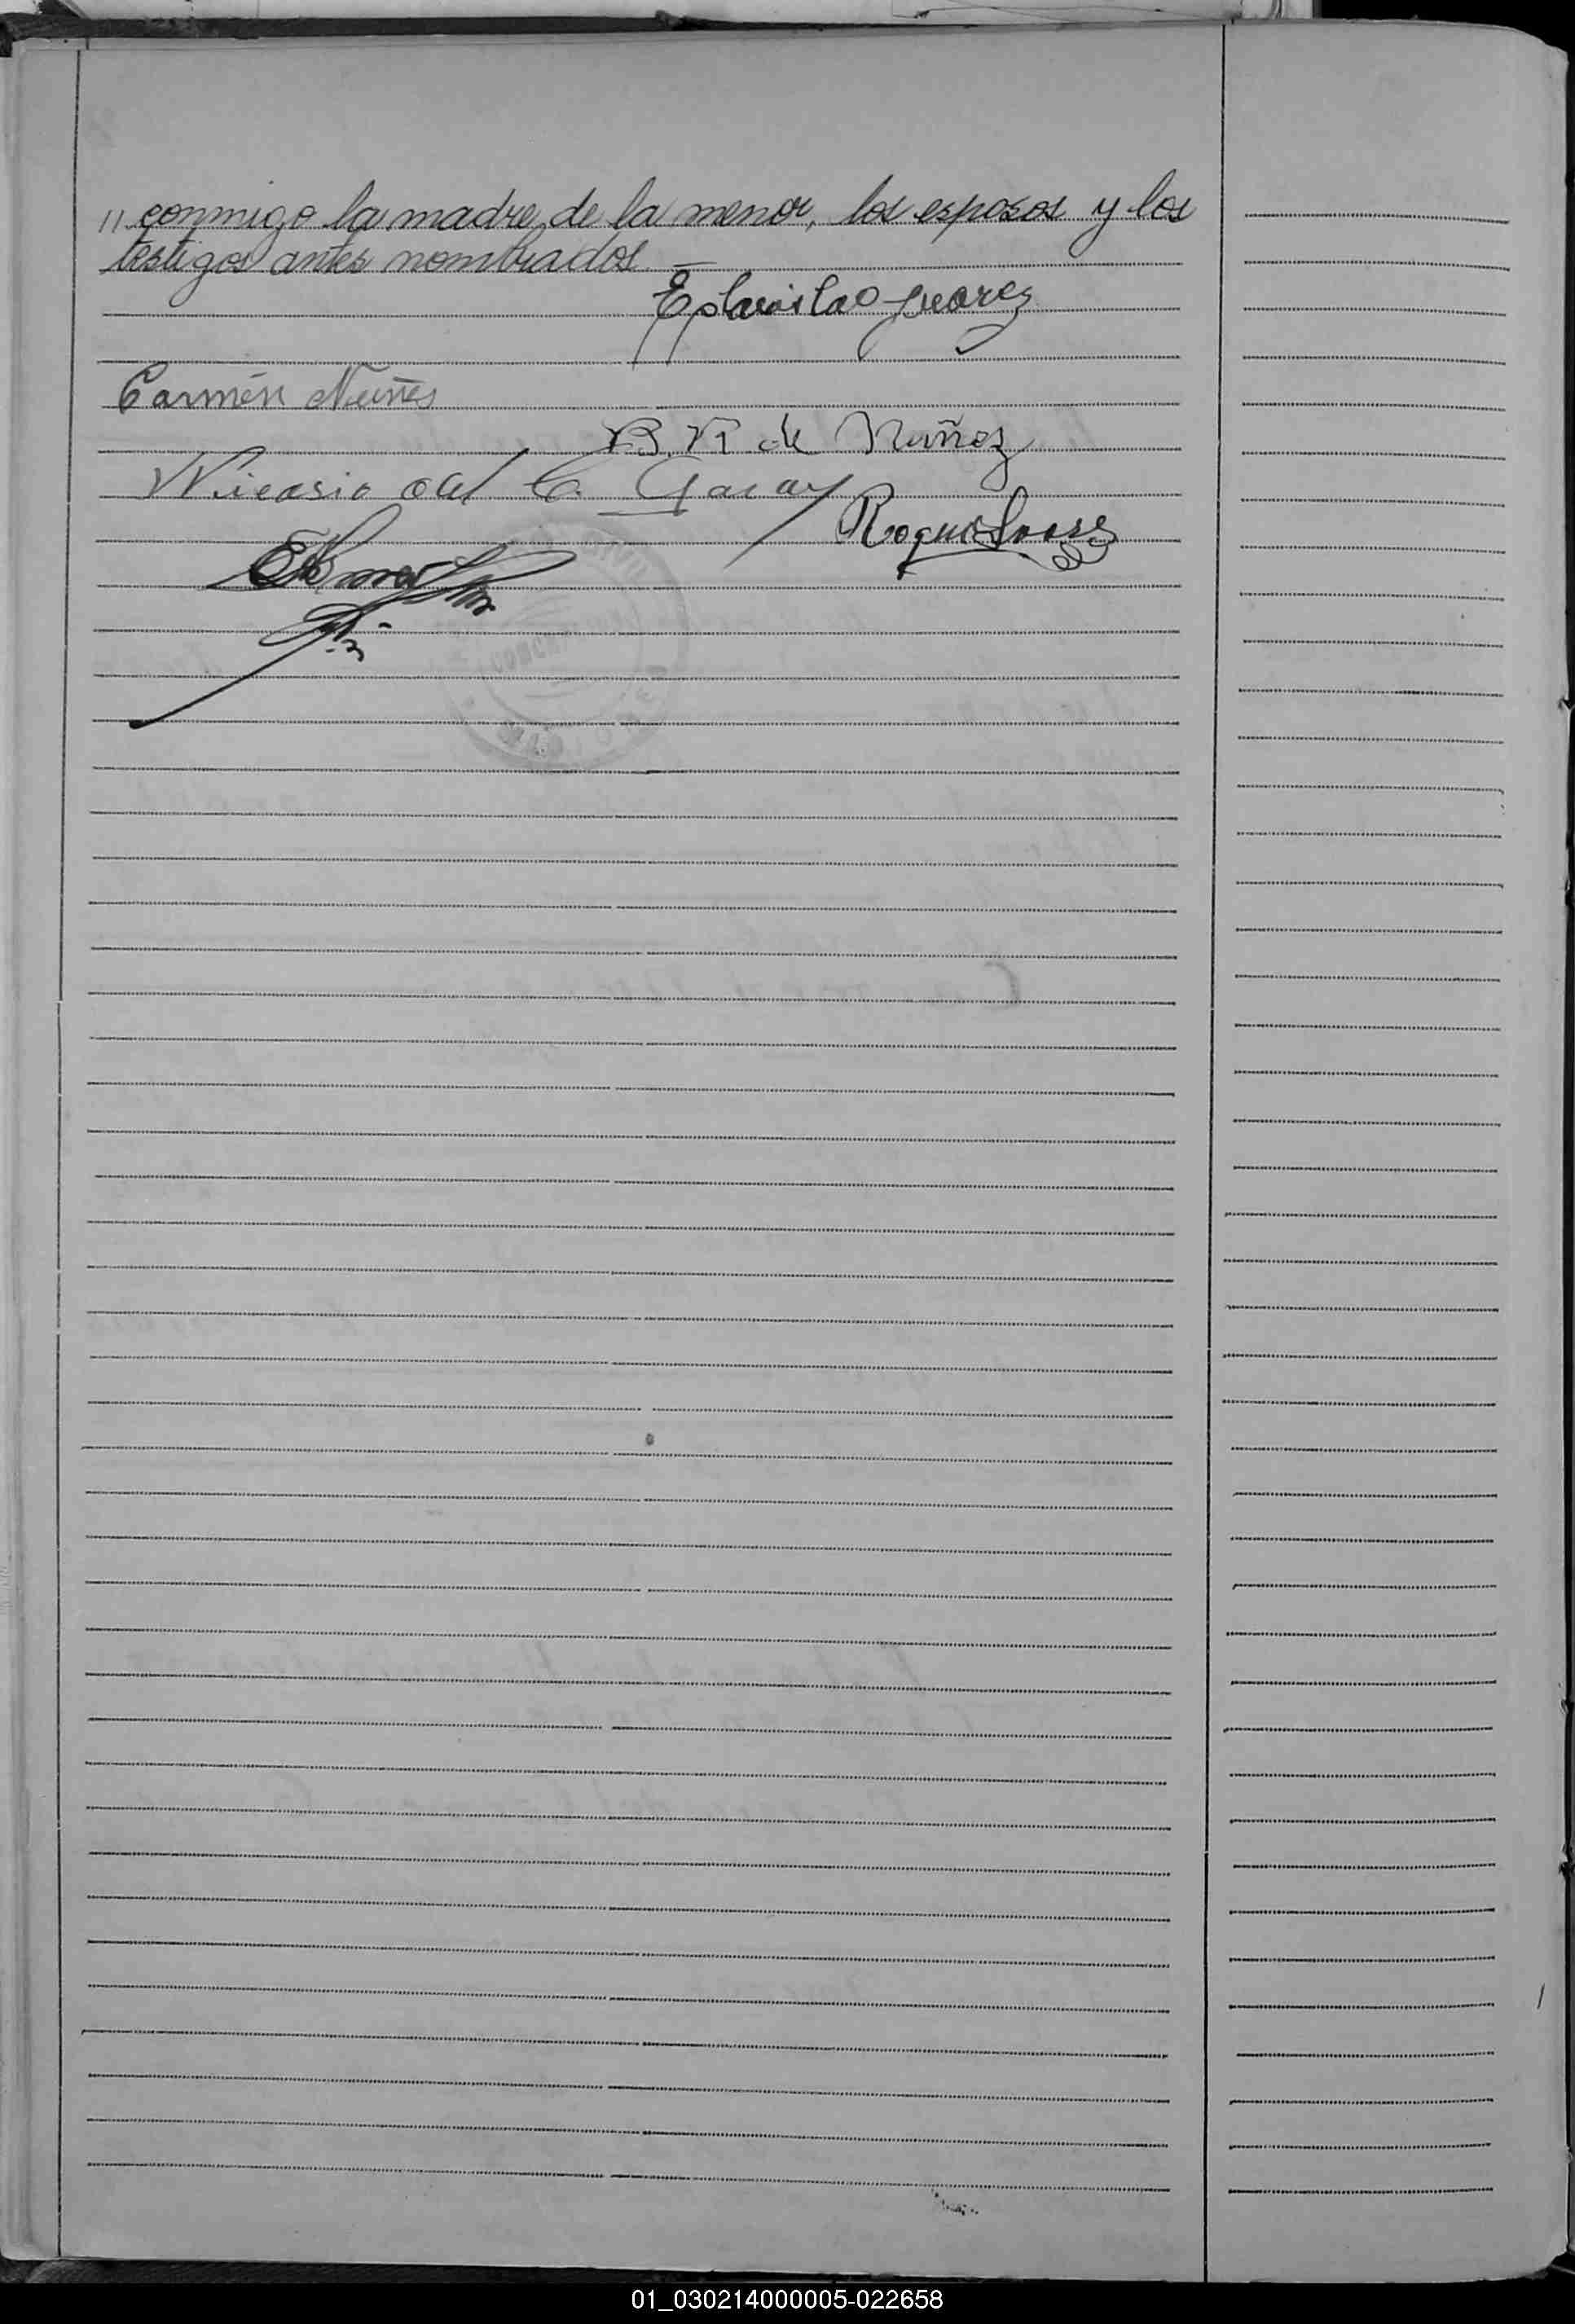 " conmigo la madre de la menor, los esposos y los
testigos antes nombrados. —
Eplavislao Juarez
Carmén Nuñes
B. R de Nuñez
Nicasio del C. Garay
Roque
01_030214000005-022658